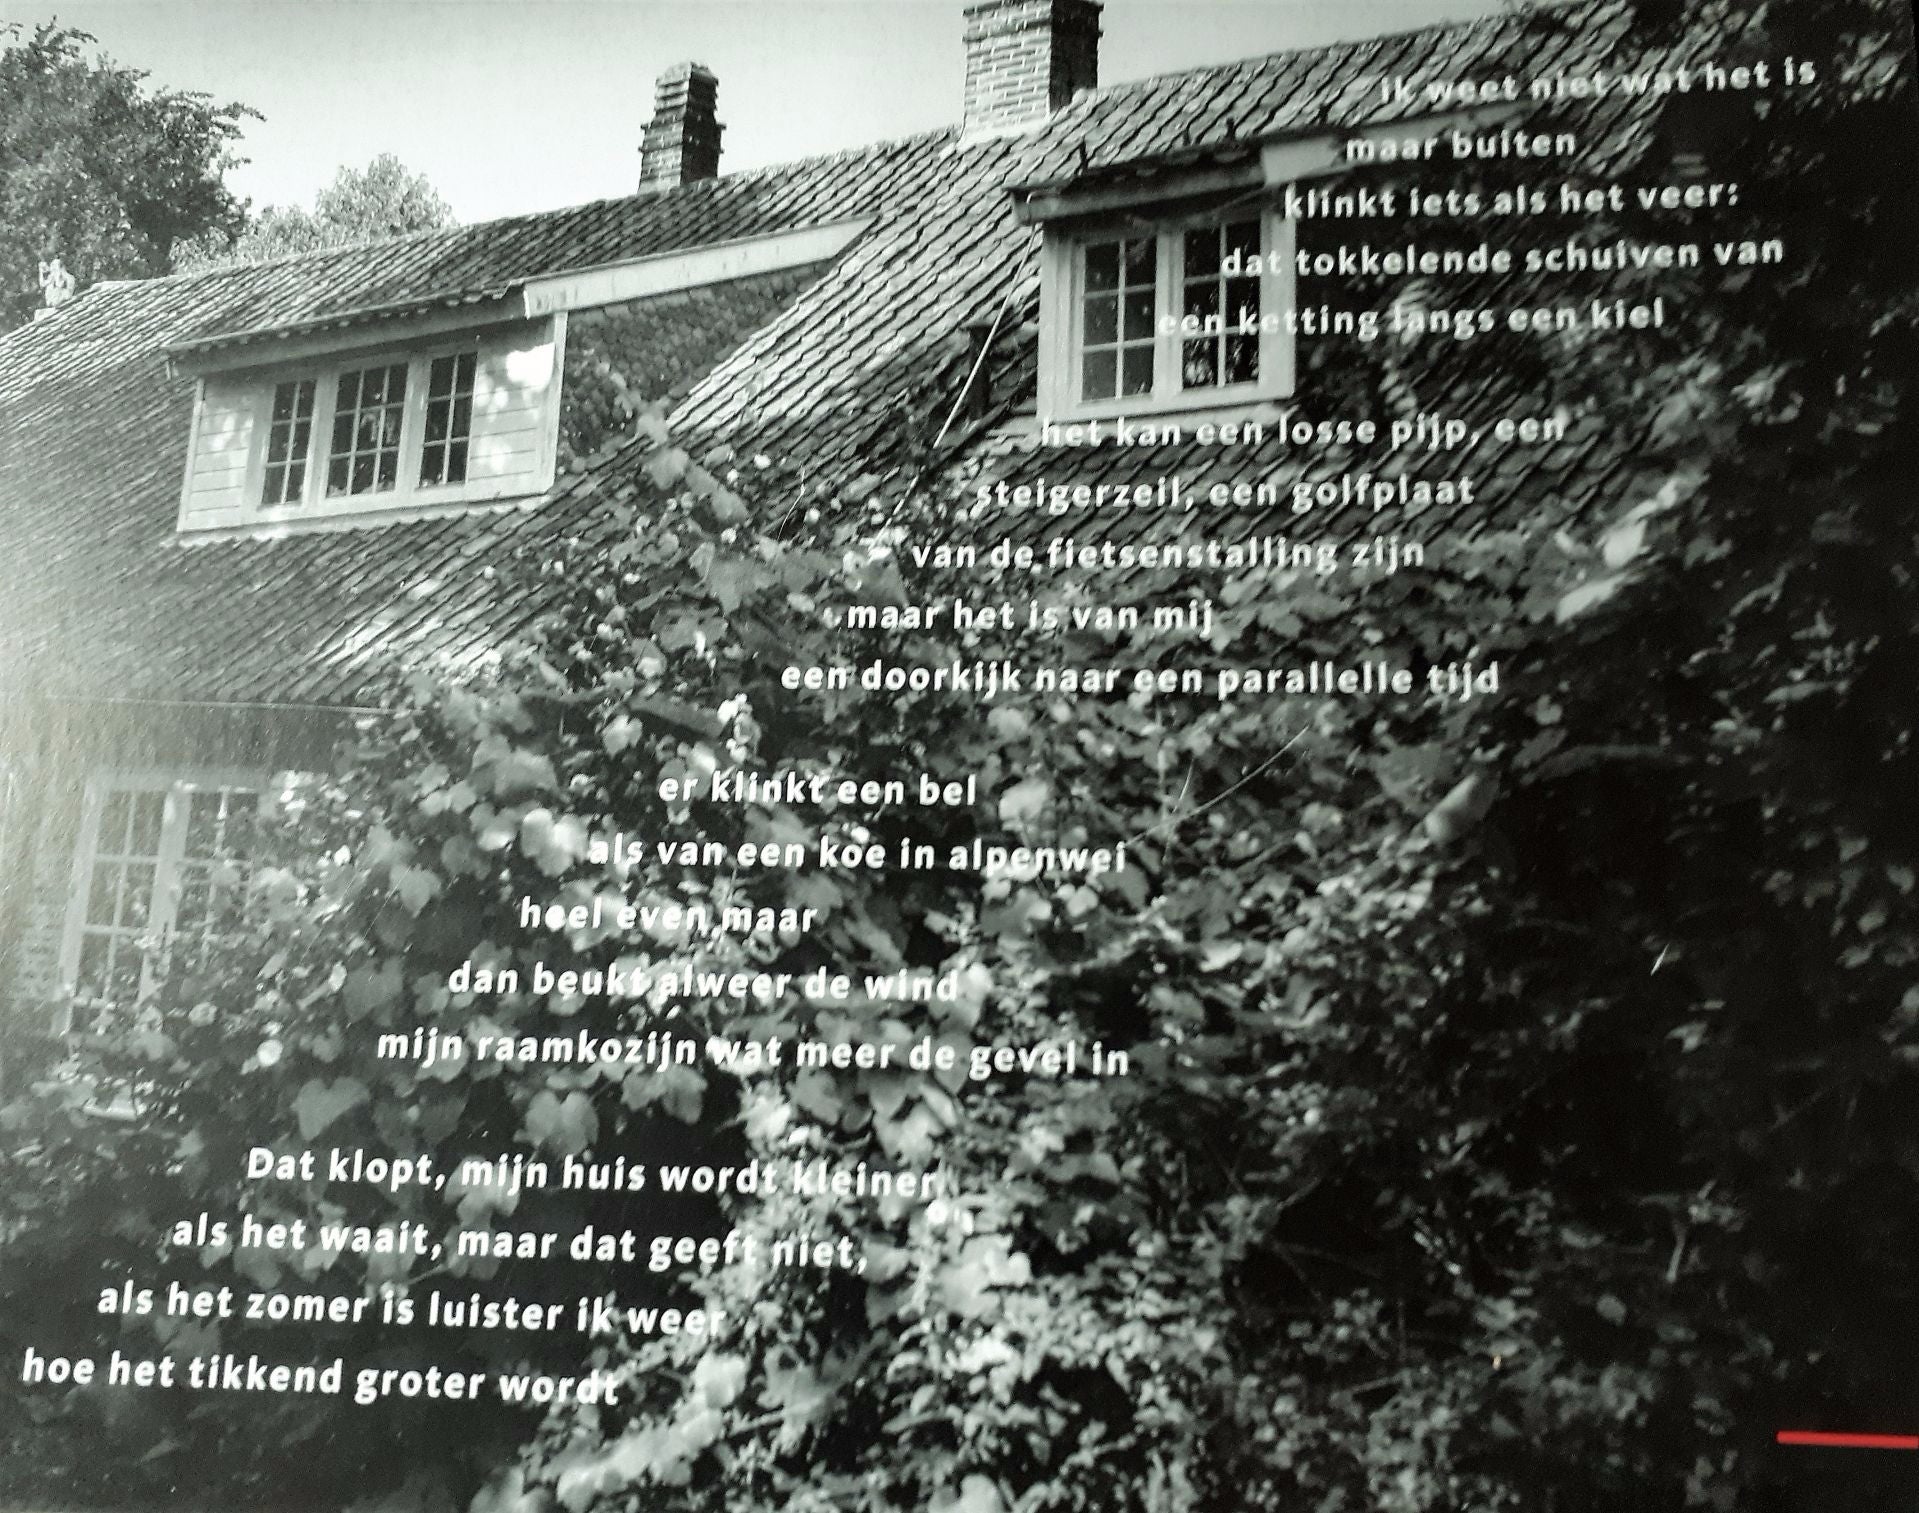 ik weet niet wat het is
maar buiten
klinkt iets als het veer:
dat tokkelende schuiven van
een ketting langs een kiel
het kan een losse pijp, een
steigerzeil, een golfplaat
van de fietsenstalling zijn
maar het is van mij
een doorkijk naar een parallelle tijd
er klinkt een bel
als van een koe in alpenwei
heel even maar
dan beukt alweer de wind
mijn raamkozijn wat meer de gevel in
Dat klopt, mijn huis wordt kleiner
als het waait, maar dat geeft niet,
als het zomer is luister ik weer
hoe het tikkend groter wordt